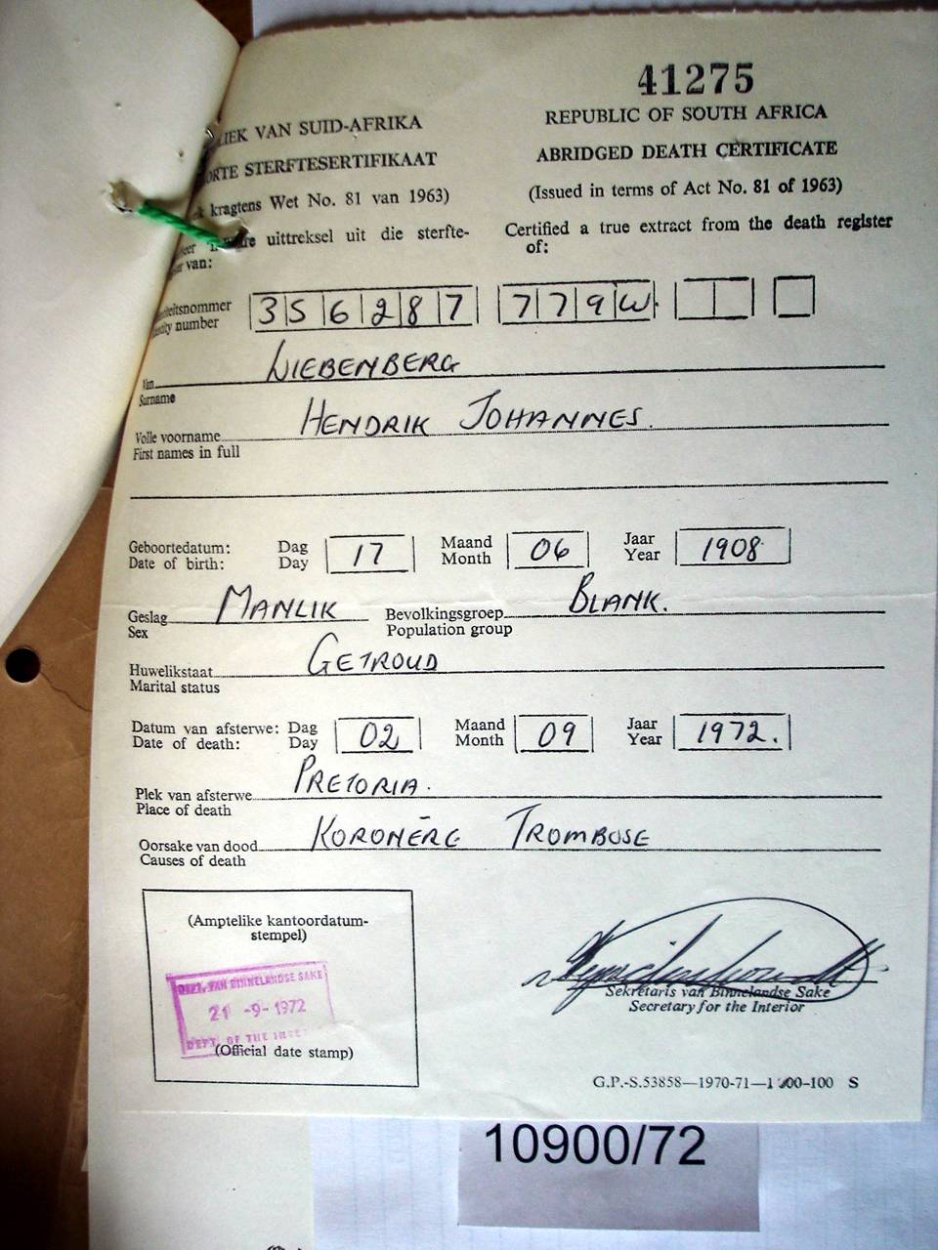 41275
IEK VAN SUID-AFRIKA
REPUBLIC OF SOUTH AFRICA
ORTE STERFTESERTIFIKAAT
ABRIDGED DEATH CERTIFICATE
kragtens Wet No. 81 van 1963)
(Issued in terms of Act No. 81 of 1963)
uittreksel uit die sterfte-
van:
Certified a true extract from the death register
of:
teitsnommer
tity number
356287 779W
Van
Surname
LIEBENBERG
Volle voorname
First names in full
HENDRIK JOHANNES.
Geboortedatum:
Date of birth:
Dag
Day
17
Maand
Month
06
Jaar
Year
1908
Geslag
Sex
MANLIK
Bevolkingsgroep
Population group
BLANK.
Huwelikstaat
Marital status
GETROUD
Datum van afsterwe:
Date of death:
Dag
Day
02
Maand
Month
09
Jaar
Year
1972.
Plek van afsterwe
Place of death
PRETORIA.
Oorsake van dood
Causes of death
KORONÊRE TROMBOSE
(Amptelike kantoordatum-
stempel)
DEPT. VAN BINNELANDSE SAKE
21 -9- 1972
DEPT. OF THE INTE
(Official date stamp)
Sekretaris van Binnelandse Sake
Secretary for the Interior
G.P.-S.53858—1970-71—1 00-100 S
10900/72